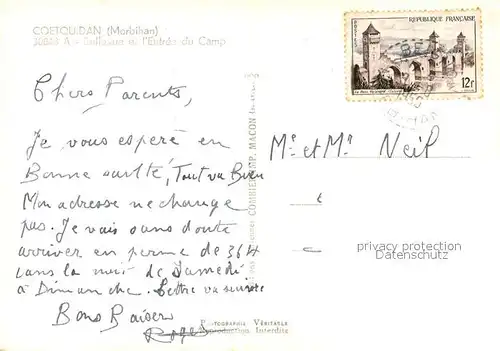 COETQUIDAN (Morbihan)
et l'Entrée du Camp
REPUBLIQUE FRANÇAISE
POSTES
12F
Chers Parents,
Je vous espère en
Bonne santé, Tout va Bien
Mon adresse ne change
pas. Je vais sans doute
arriver en perme de 36H
dans la nuit de Samedi
à Dimanche. Lettre va suivre
Bons Baisers
Roger
Mr et Me Neil
privacy protection
Datenschutz
COMBIER IMP. MACON
PHOTOGRAPHIE VÉRITABLE
Reproduction Interdite